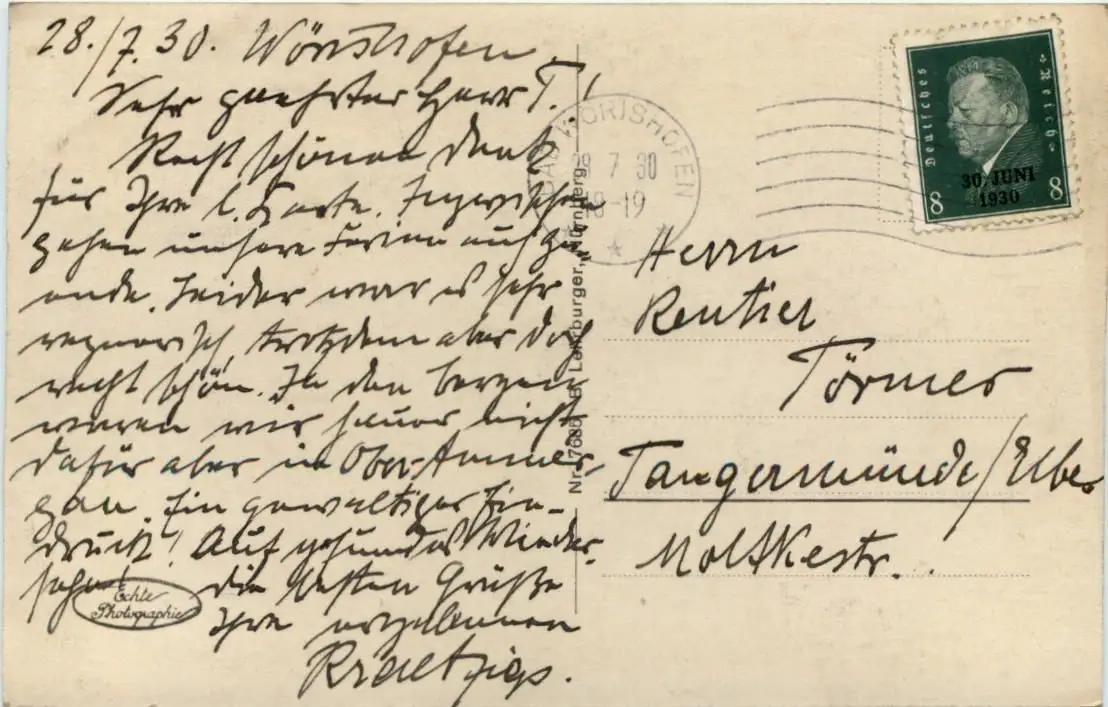 28./7.30. Wörishofen.
Sehr geehrter Herr T.!
Recht schönen Dank
für Ihre l. Karte. Inzwischen
gehen unsere Ferien auch zu
ende. Leider war es sehr
regnerisch, trotzdem aber doch
recht schön. In den Bergen
waren wir heuer nicht
dafür aber in Ober-Ammer-
gau. Ein gewaltiger Ein-
druck! Auf gesundes Wieder-
sehn! die besten Grüße
Ihre ergebenen
Echte
Photographie
Nr. Lehrburger, Nürnberg
BAD WÖRISHOFEN
29 7 30
18-19
Deutsches Reich
30. JUNI
1930
8 8
Herrn
Rentier
Törmer
Tangermünde/Elbe
Moltkestr.